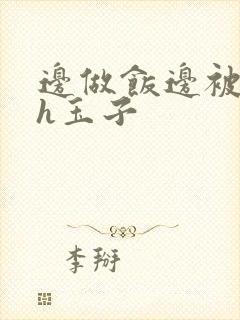 邊做飯邊被
h玉子
李掰